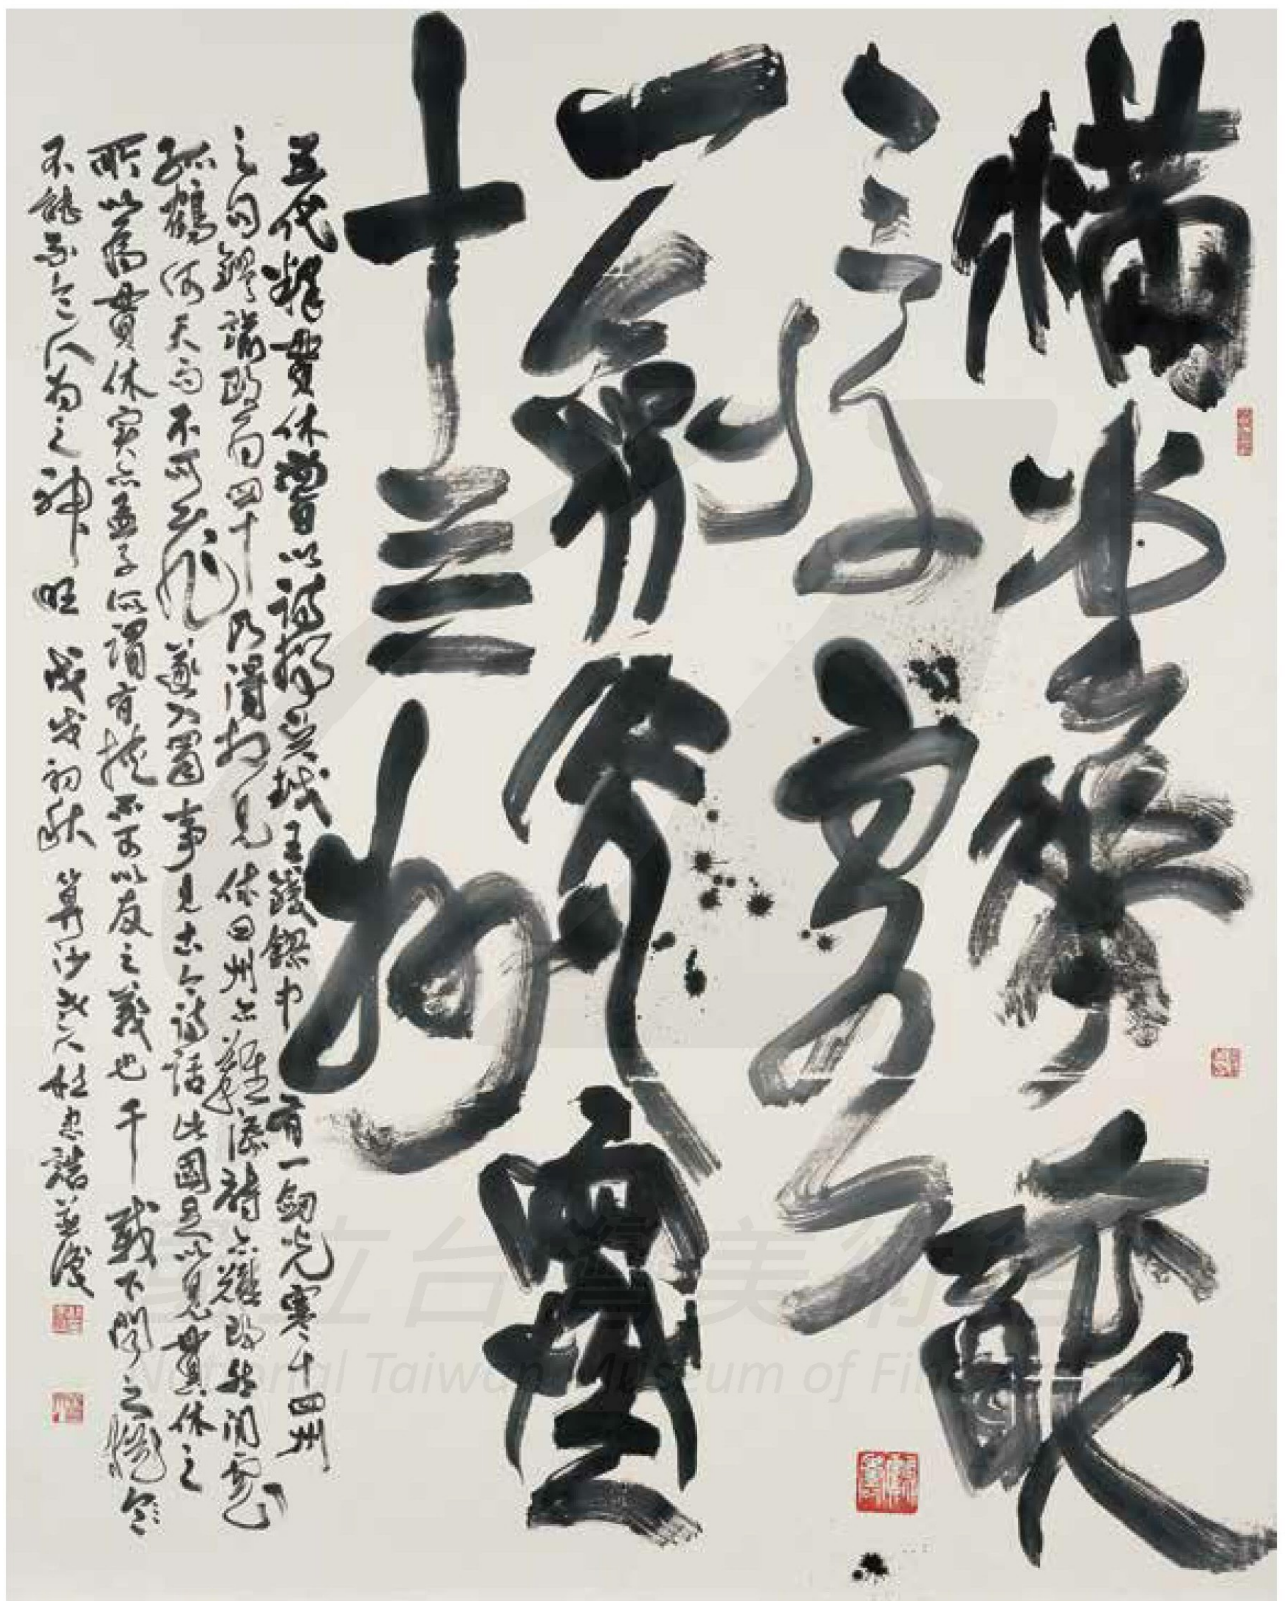 滿堂花醉
三千客
一劍寒
十四州
五代釋貫休曾以詩投吳越王錢鏐中有一劍光寒十四州
之句鏐諭改為四十乃得相見休曰州亦難添詩亦難改然閒雲
孤鶴何天而不可飛遂入蜀事見古今詩話此國足以見貫休之
所以為貫休實亦孟子所謂有挾不可以友之義也千載下聞之猶令
不能不令人為之神旺 戊戌初秋 算沙老人杜忠誥並
國立台灣美術館
National Taiwan Museum of Fine